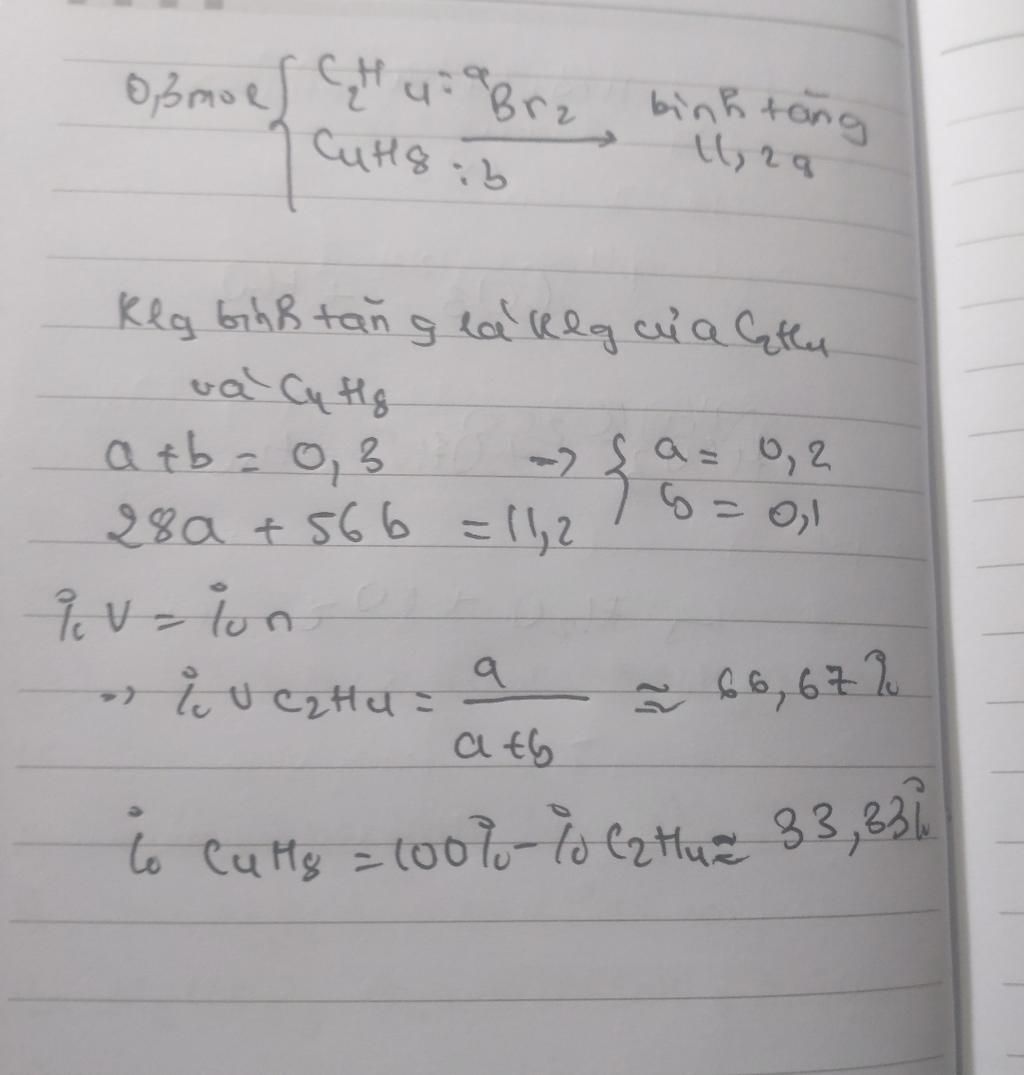 0,3mol { C2H4: a Br2 bình tăng
C4H8 : b → 11,2g
Klg bình tăng là klg của C2H4
và C4H8
a + b = 0,3 → { a = 0,2
28a + 56b = 11,2 b = 0,1
% V = % n
→ % V C2H4 = a / a+b ≈ 66,67%
% C4H8 = 100% - % C2H4 ≈ 33,33%